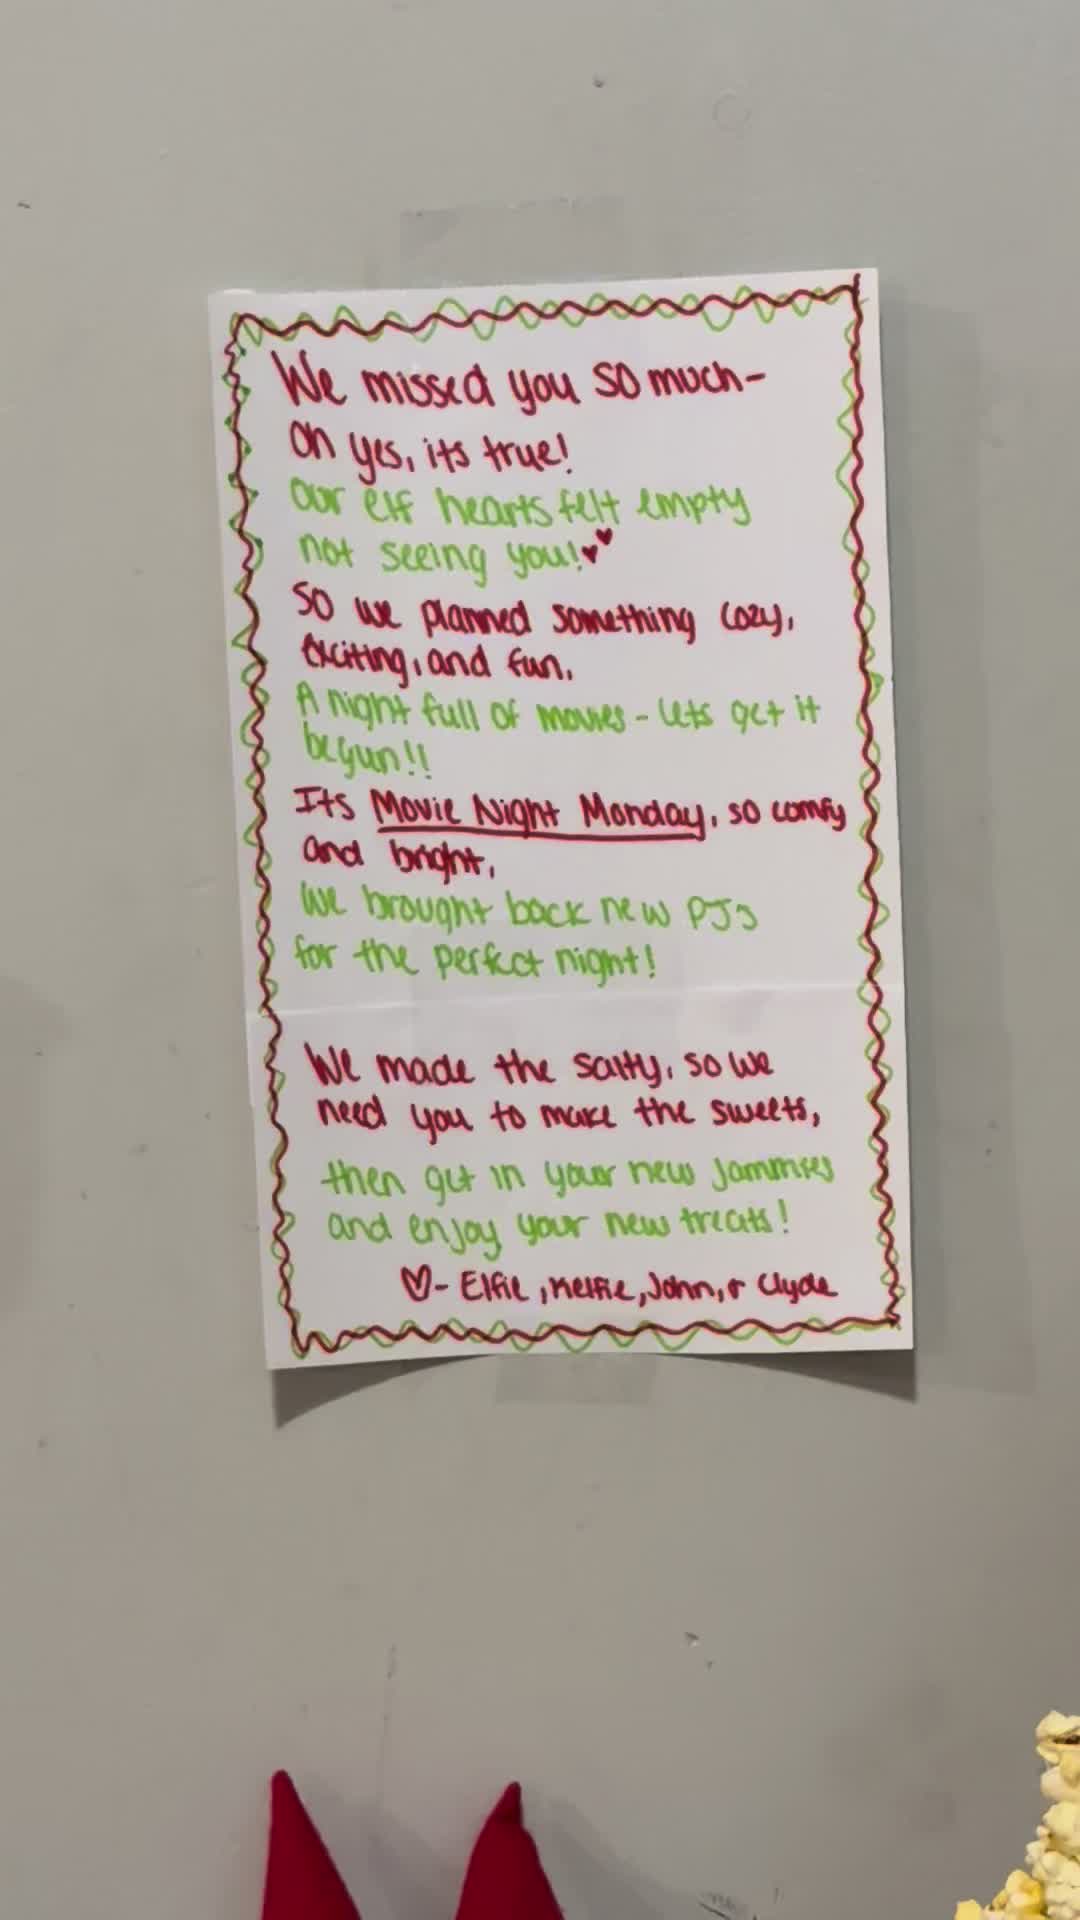 We missed you so much-
oh yes, its true!
our elf hearts felt empty
not seeing you!
So we planned something cozy,
exciting, and fun,
A night full of movies - lets get it
begun!!
Its Movie Night Monday, so comfy
and bright,
We brought back new PJs
for the perfect night!
We made the salty, so we
need you to make the sweets,
then get in your new jammies
and enjoy your new treats!
- Elfie, Kelfie, John, & Clyde